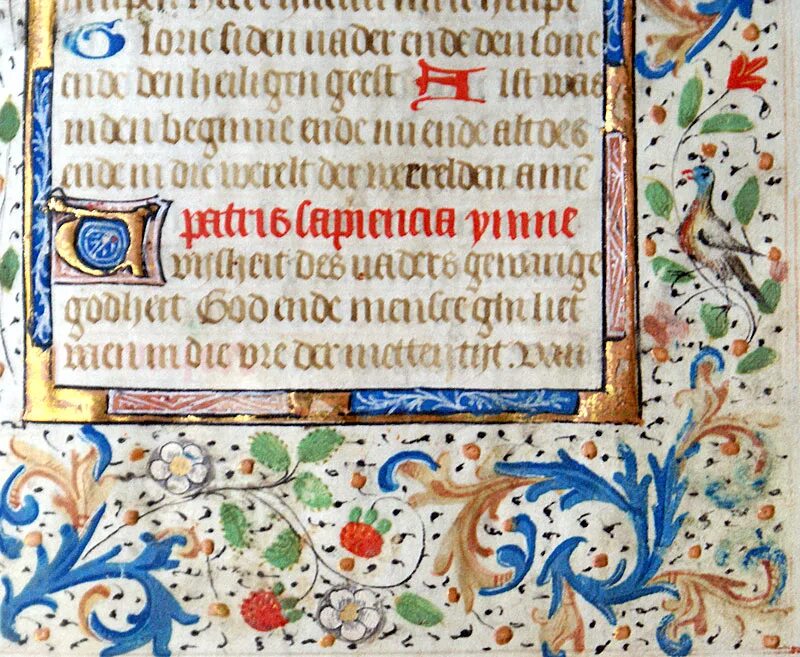 Glorie si den uader ende den sone
ende den heiligen geest Alst was
inden beginne ende nu ende alt des
ende in die werelt der werelden amē
patris sapiencia yinne
wijsheit des uaders gewarige
godheit God ende mensce ghi liet
in die vre der metten tijt. Van